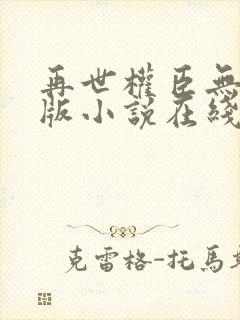 再世權臣無
版小說在綫
克雷格-托馬斯